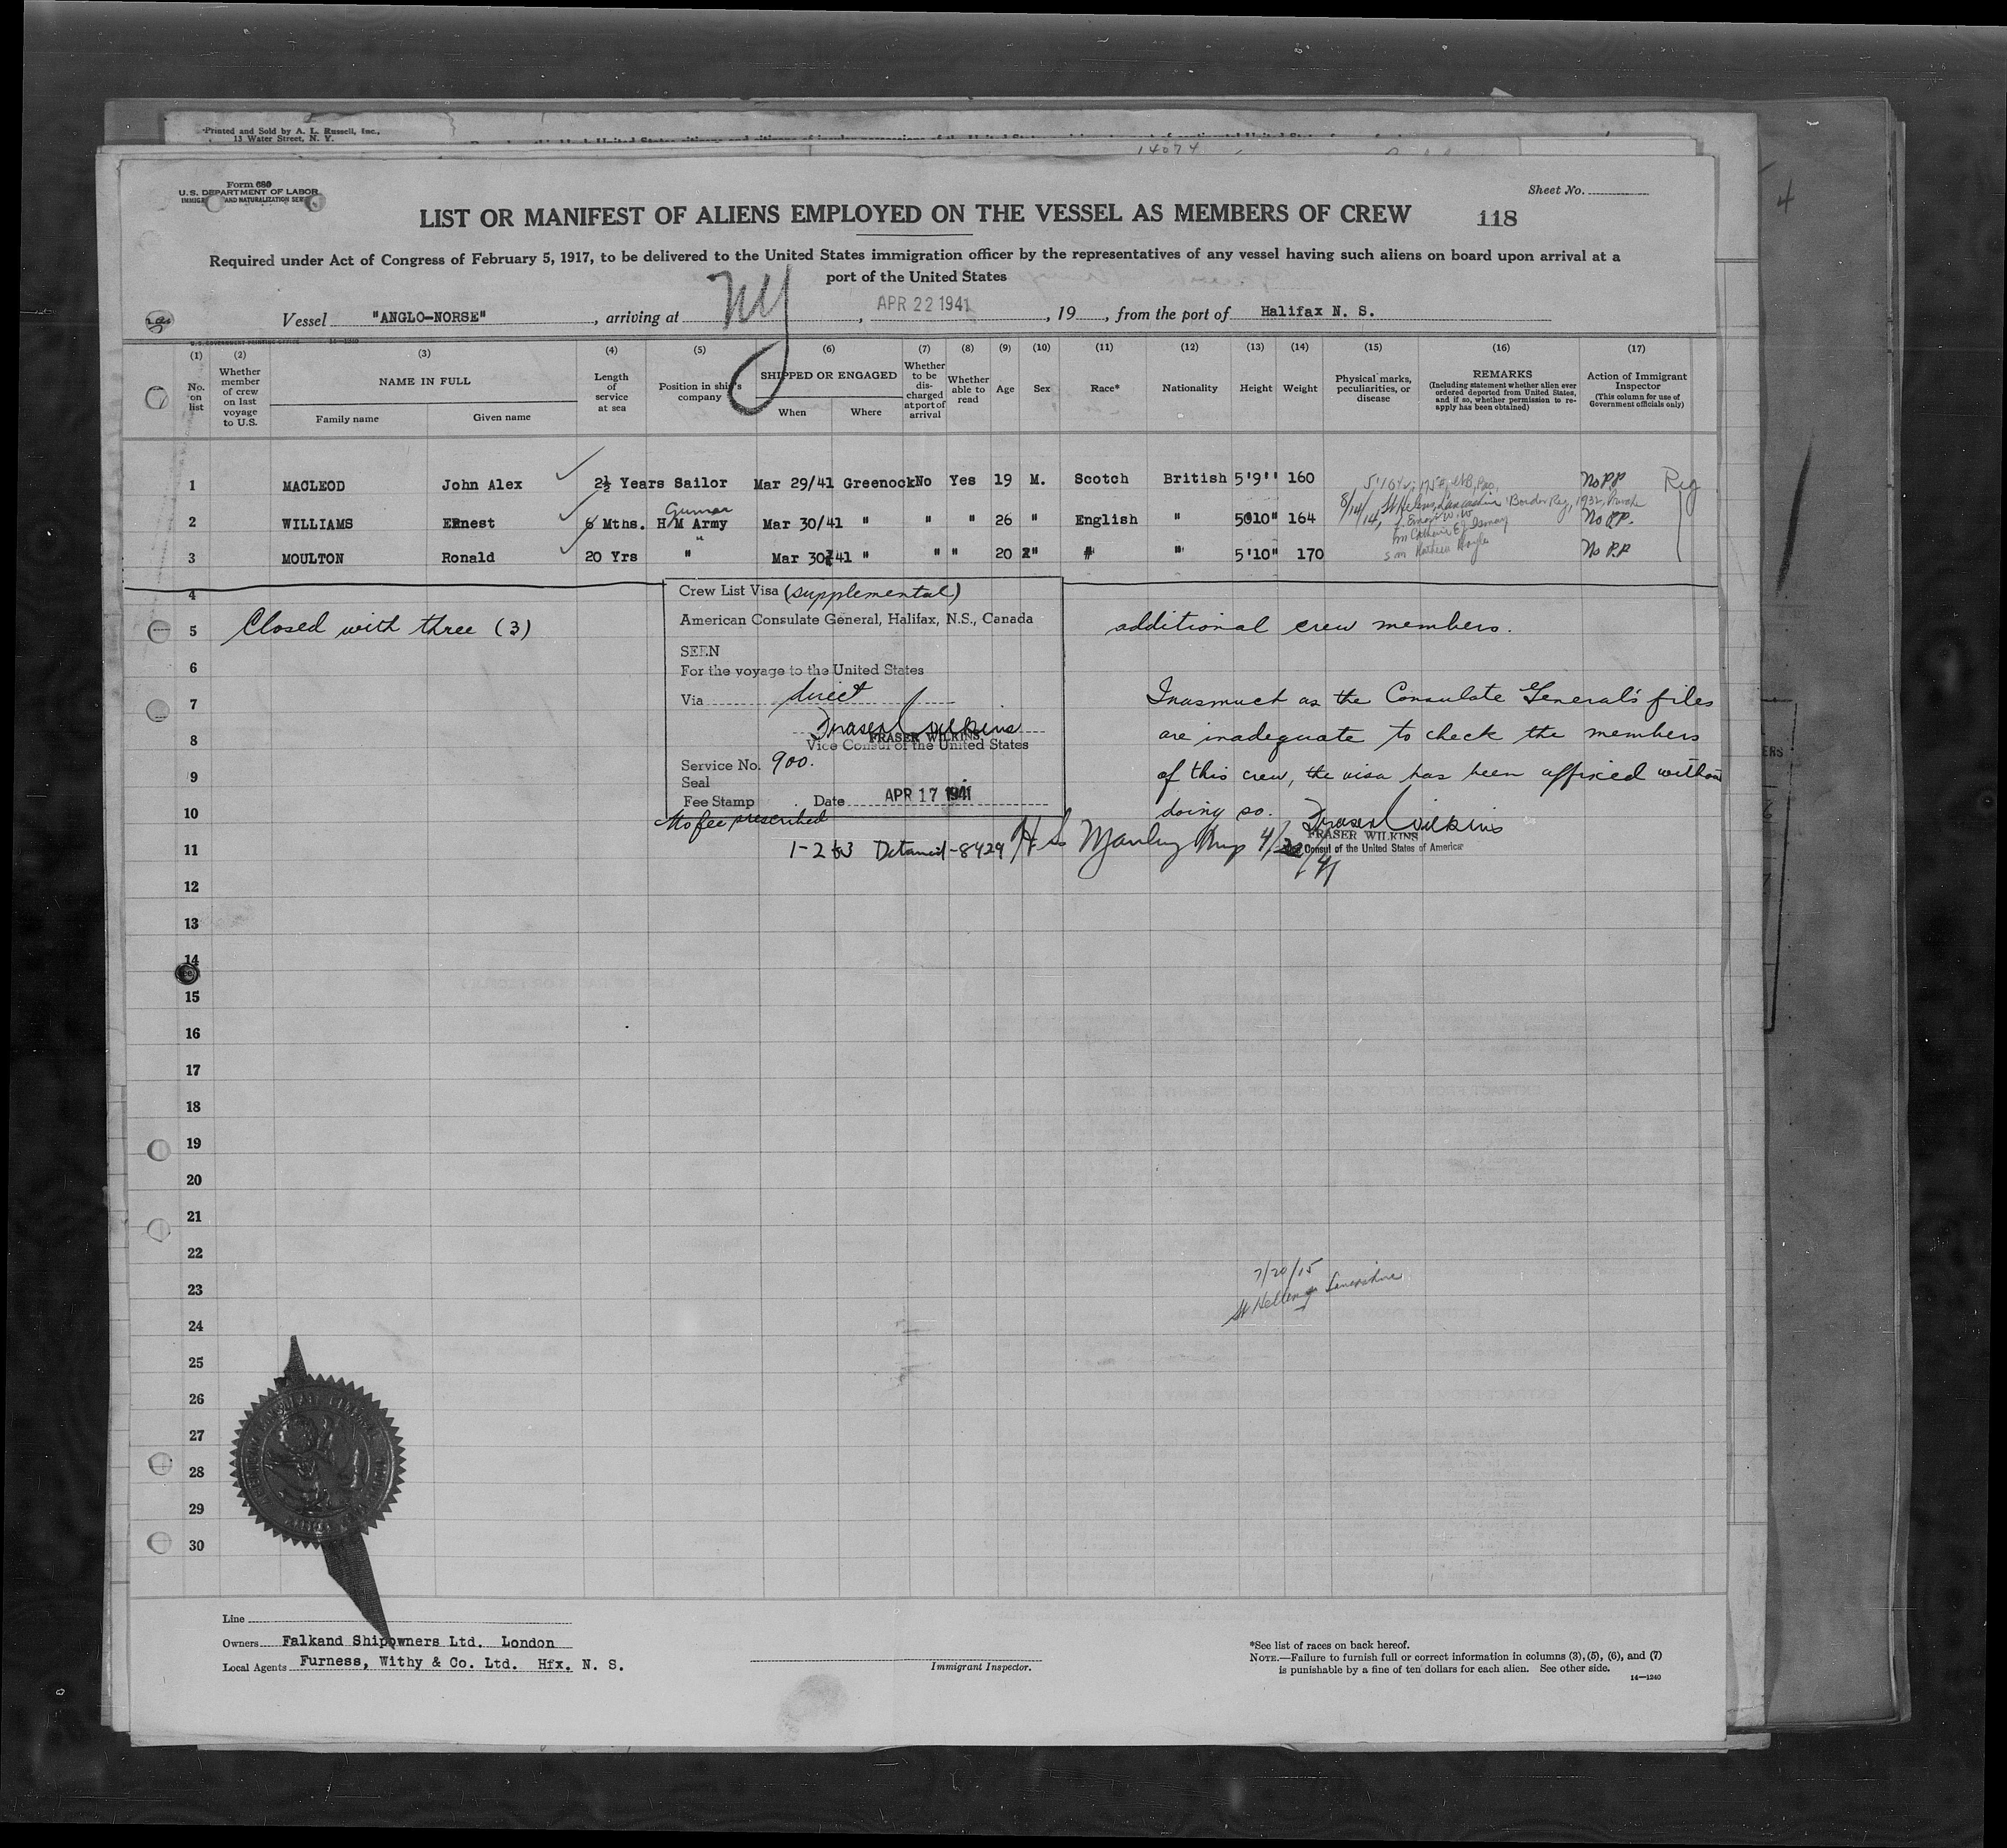 Printed and Sold by A. L. Russell, Inc.,
13 Water Street, N. Y.
14074
Form 680
U. S. DEPARTMENT OF LABOR
IMMIGRATION AND NATURALIZATION SERVICE
Sheet No.
LIST OR MANIFEST OF ALIENS EMPLOYED ON THE VESSEL AS MEMBERS OF CREW
118
Required under Act of Congress of February 5, 1917, to be delivered to the United States immigration officer by the representatives of any vessel having such aliens on board upon arrival at a
port of the United States
Vessel "ANGLO-NORSE", arriving at NY, APR 22 1941, 19, from the port of Halifax N. S.
(1) (2) (3) (4) (5) (6) (7) (8) (9) (10) (11) (12) (13) (14) (15) (16) (17)
No. on list
Whether member of crew on last voyage to U.S.
NAME IN FULL
Family name Given name
Length of service at sea
Position in ship's company
SHIPPED OR ENGAGED
When Where
Whether to be discharged at port of arrival
Whether able to read
Age
Sex
Race*
Nationality
Height
Weight
Physical marks, peculiarities, or disease
REMARKS
(Including statement whether alien ever ordered deported from United States, and if so, whether permission to reapply has been obtained)
Action of Immigrant Inspector
(This column for use of Government officials only)
1 MACLEOD John Alex 2½ Years Sailor Mar 29/41 Greenock No Yes 19 M. Scotch British 5'9'' 160 No PP Reg
Gunner
2 WILLIAMS Ernest 6 Mths. H M Army Mar 30/41 " " " 26 " English " 5'10" 164 8/14/14, St Helens, Lancashire Border Reg, 1932, No PP.
3 MOULTON Ronald 20 Yrs " Mar 30/41 " " " 20 " " " 5'10" 170 No P.P
4
Crew List Visa (supplemental)
American Consulate General, Halifax, N.S., Canada
5 Closed with three (3) additional crew members.
SEEN
6
For the voyage to the United States
7
Via direct
Inasmuch as the Consulate General's files
Fraser Wilkins
FRASER WILKINS
8
Vice Consul of the United States
are inadequate to check the members
Service No. 900.
9
Seal
of this crew, the visa has been affixed without
Fee Stamp Date APR 17 1941
10
No fee prescribed
doing so. Fraser Wilkins
FRASER WILKINS
Consul of the United States of America
11
1-2 & 3 Detained - 8429 H. S. Manley Insp 4/22/41
12
13
14
15
16
17
18
19
20
21
22
7/20/15
23
St Helens Lancashire
24
25
26
27
28
29
30
Line
Owners Falkand Shipowners Ltd. London
Local Agents Furness, Withy & Co. Ltd. Hfx. N. S.
Immigrant Inspector.
*See list of races on back hereof.
NOTE.—Failure to furnish full or correct information in columns (3), (5), (6), and (7)
is punishable by a fine of ten dollars for each alien. See other side.
14—1240